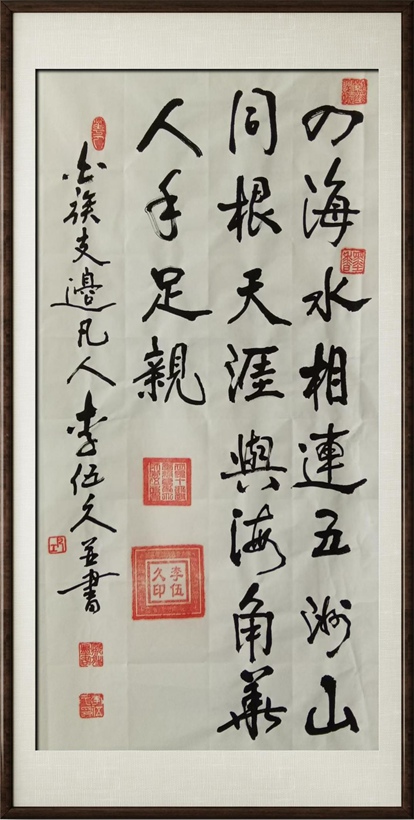 四海水相連五洲山
同根天涯與海角華
人手足親
支邊凡人李伍久並書
李伍
久印